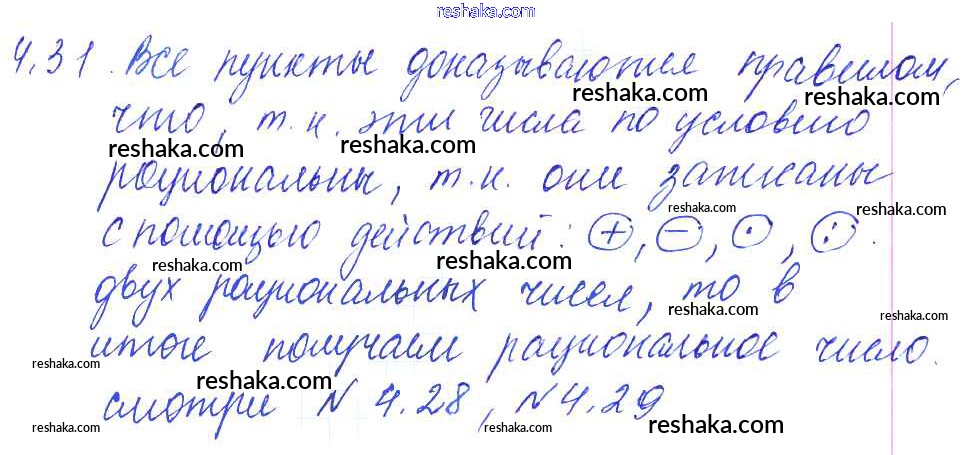 reshaka.com
4.31. Все пункты доказываются правилом,
reshaka.com reshaka.com
что, т.к. эти числа по условию
reshaka.com reshaka.com
рациональны, т.к. они записаны
reshaka.com reshaka.com
с помощью действий: +, -, ·, :.
reshaka.com reshaka.com
двух рациональных чисел, то в
reshaka.com
итоге получаем рациональное число.
reshaka.com reshaka.com reshaka.com reshaka.com
смотри N 4.28, N 4.29
reshaka.com reshaka.com reshaka.com